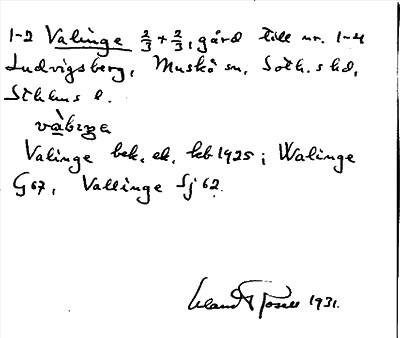 1-2 Valinge 2/3 + 2/3, gård till nr. 1-4
Ludvigsberg, Muskö sn, Soth.s hd,
Sthlms l.
Valinge bek. ek. kb 1925; Walinge
G 67, Vallinge Sj 62.
1931.